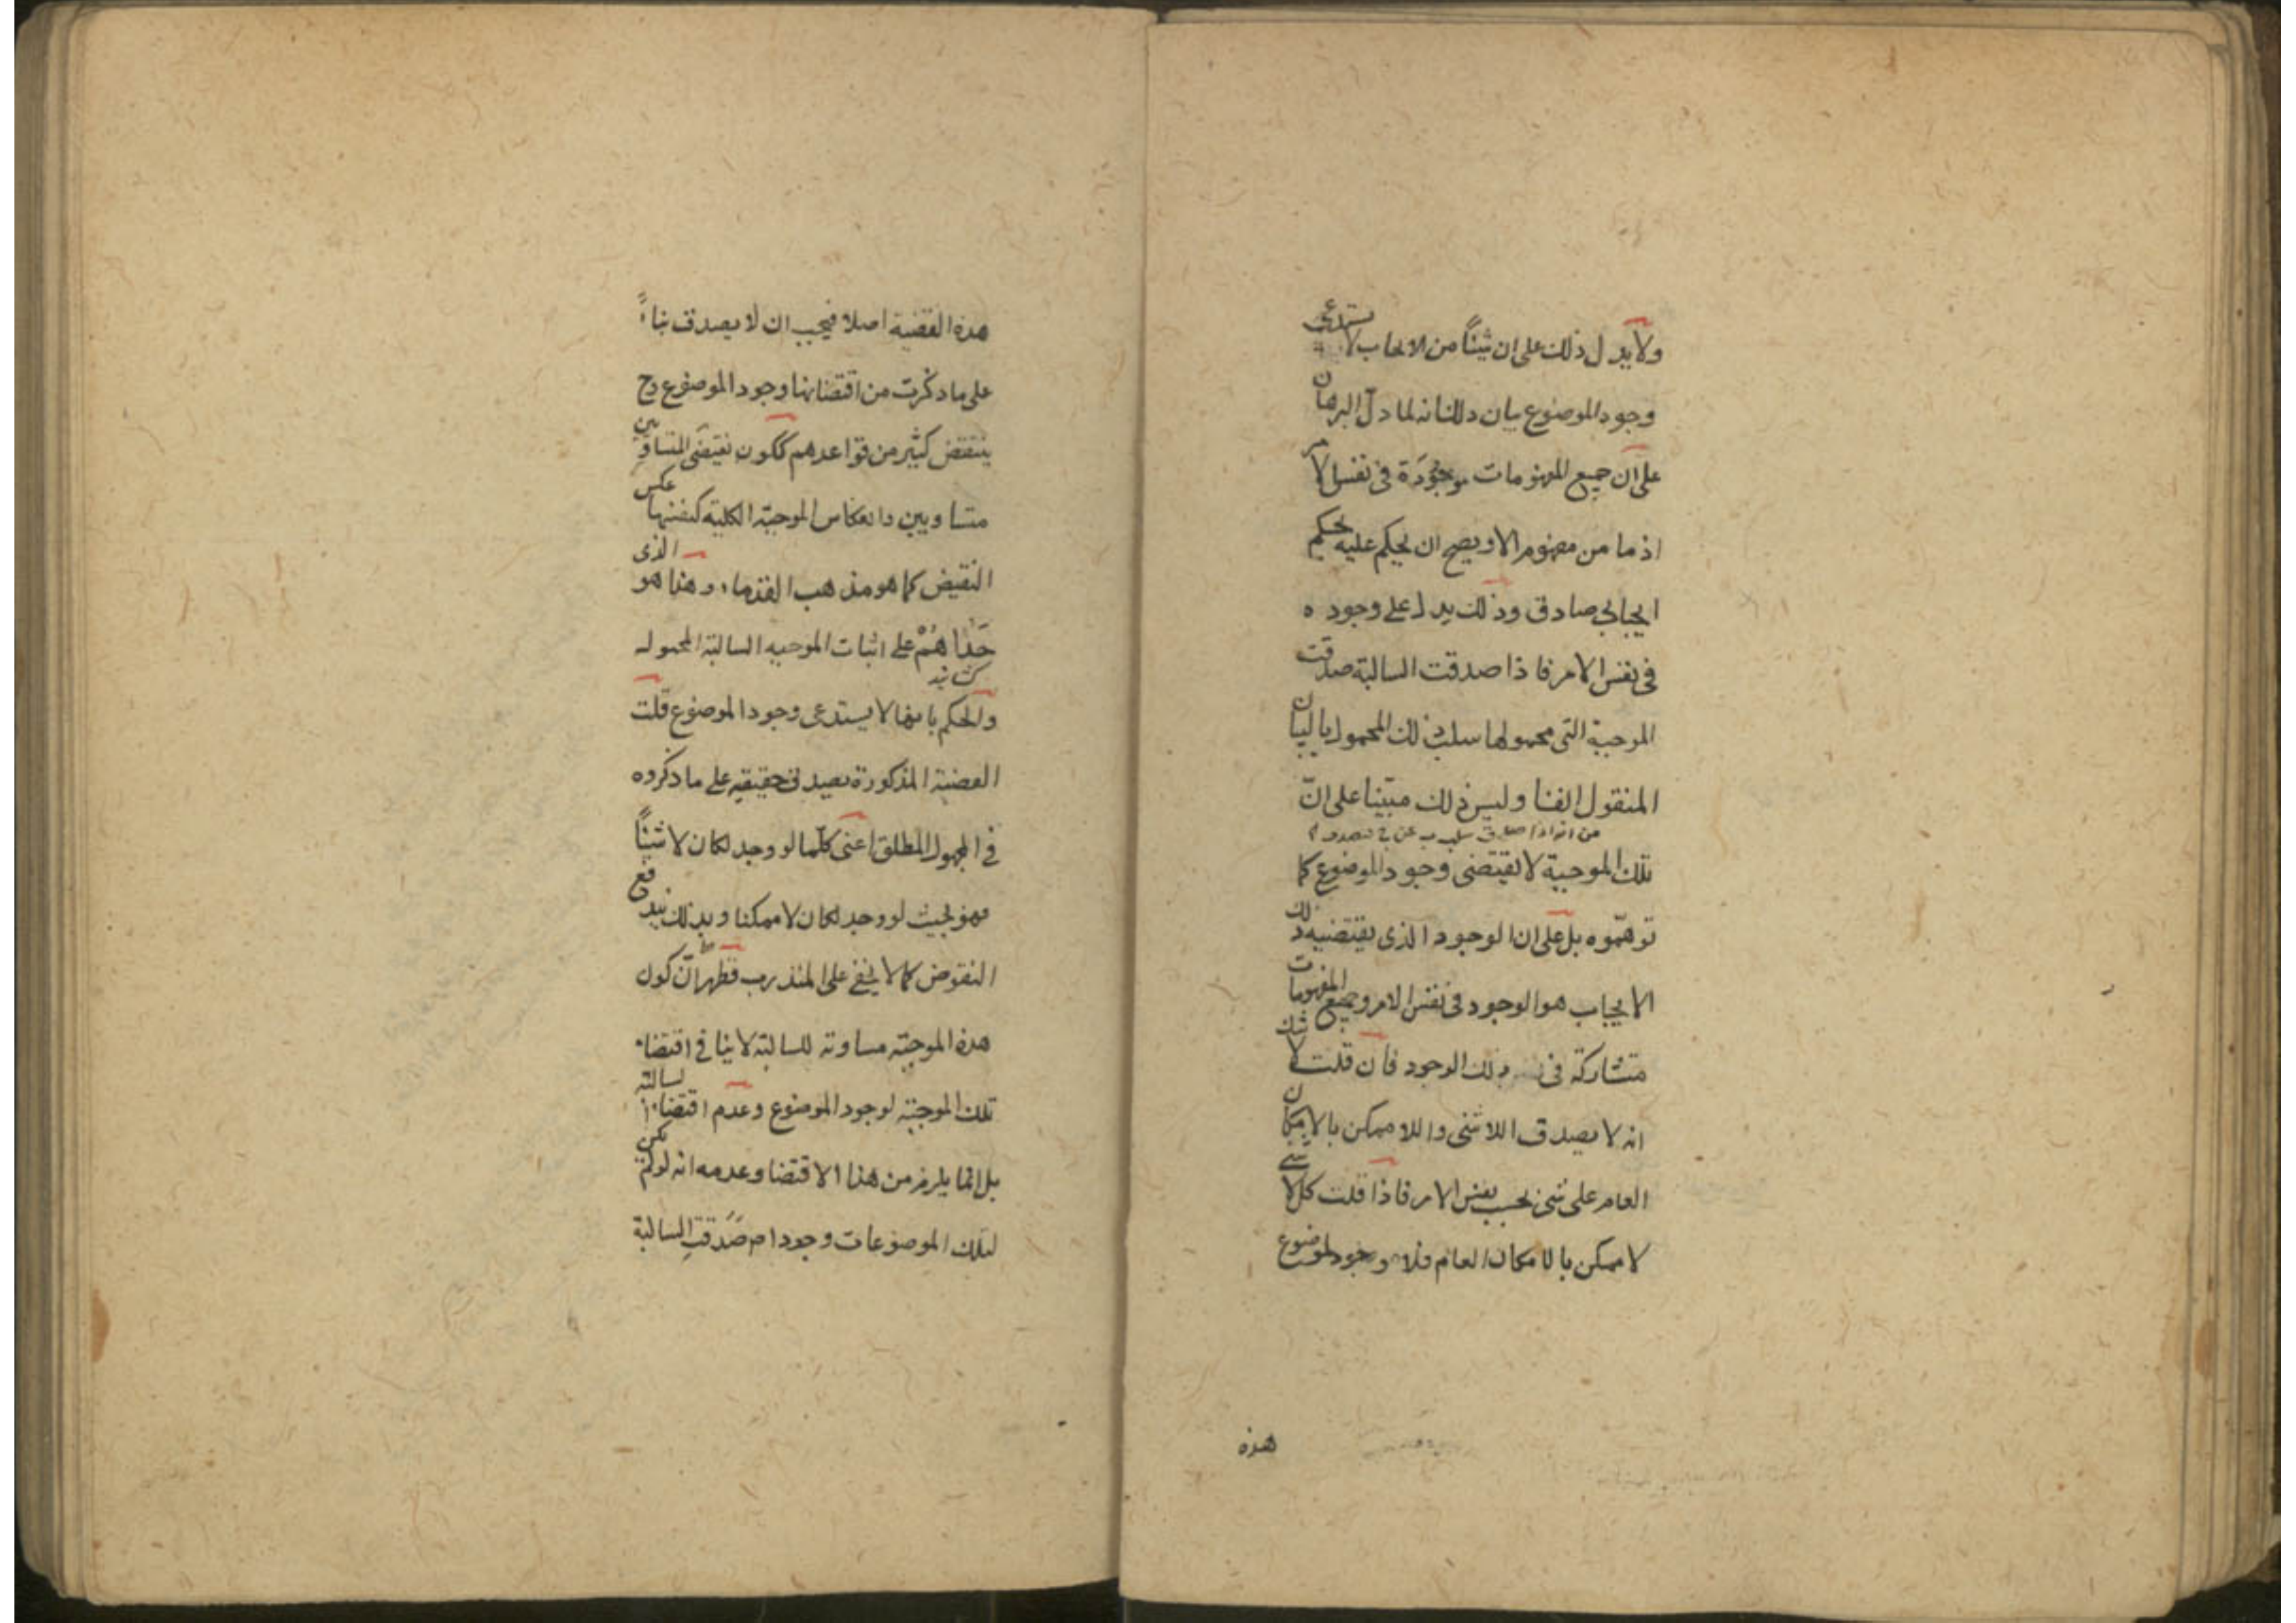 ولا يدل ذلك على ان شيئاً من الايجاب لا يستدعى
وجود الموضوع بيان ذلك انه لما دلّ البرهان
على ان جميع المفهومات موجودة فى نفس الامر
اذ ما من مفهوم الا ويصح ان يحكم عليه بحكم
ايجابى صادق وذلك يدل على وجوده
فى نفس الامر فاذا صدقت السالبة صدقت
الموجبة التى محمولها سلب ذلك المحمول بالبيان
المنقول الفنا وليس ذلك مبنيا على انّ
من انه اذا صدق سلب ب عن ج
تلك الموجبة لا تقتضى وجود الموضوع كما
توهموه بل على ان الوجود الذى يقتضيه ذلك
الايجاب هو الوجود فى نفس الامر وجميع المفهومات
متشاركة فى ذلك الوجود فان قلت لا شك
انه لا يصدق اللاشئ واللاممكن بالامكان
العام على شئ بحسب نفس الامر فاذا قلت كل لا شئ
لا ممكن بالامكان العام فلا وجود لموضوع
هذه
هذه القضية اصلا فيجب ان لا يصدق بناءً
على ما ذكرت من اقتضائها وجود الموضوع وح
ينتقض كثير من قواعدهم ككون نقيضى المتساويين
متساويين وانعكاس الموجبة الكلية كنفسها عكس
النقيض كما هو مذهب القدماء وهذا هو الذى
حداهم على اثبات الموجبه السالبة المحمول
والحكم بانها لا يستدعى وجود الموضوع قلت
القضية المذكورة يصدق حقيقيه على ما ذكروه
فى المجهول المطلق اعنى كلما لو وجد لكان لا شيئاً
فهو بحيث لو وجد لكان لا ممكنا وبذلك يندفع
النقوض كما لا يخفى على المتدرب فظهر انّ كون
هذه الموجبة مساوية للسالبة لا ينافى اقتضاء
تلك الموجبة لوجود الموضوع وعدم اقتضاء السالبة
بل انما يلزم من هذا الاقتضا وعدمه انه لو لم يكن
لتلك الموضوعات وجود اصلا صدقت السالبة